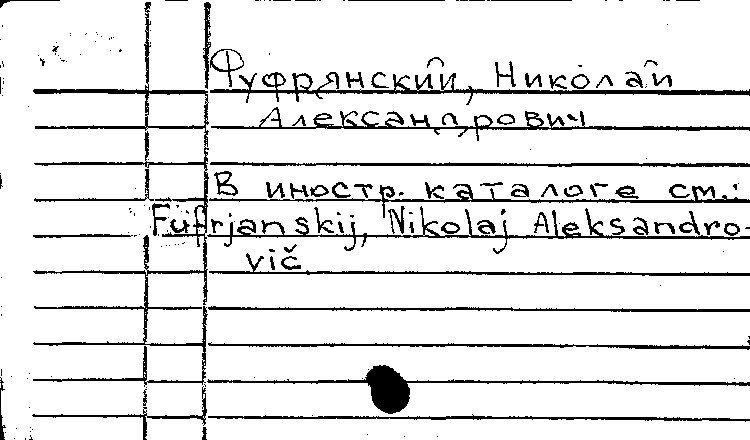 Фуфрянский, Николай
Александрович
В иностр. каталоге см.:
Fufrjanskij, Nikolaj Aleksandro-
vič